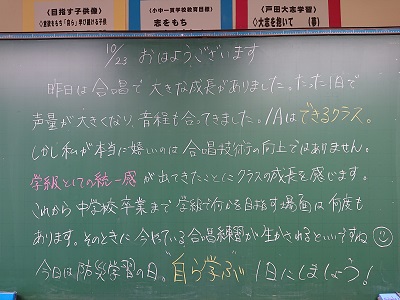 ◇目指す子供像◇
(小中一貫学校教育目標)
志をもち
◇戸田大志学習◇
◇大志を抱いて
10/23 おはようございます
昨日は合唱で大きな成長がありました。たった1日で
声量が大きくなり、音程も合ってきました。1Aはできるクラス。
しかし私が本当に嬉しいのは合唱技術の向上ではありません。
学級としての統一感が出てきたことにクラスの成長を感じます。
これから中学校卒業まで学級で何かを目指す場面は何度も
あります。そのときに今やっている合唱練習が生かされるといいですね
今日は防災学習の日。"自ら学ぶ"1日にしましょう!